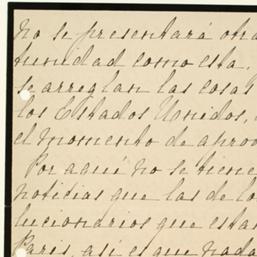 no se presentará otra
tunidad como esta.
se arreglan las cosas
los Estados Unidos,
el momento de aprov
Por aquí no se tiene
noticias que las de lo
lucionarios que esta
Paris, asi es que nada